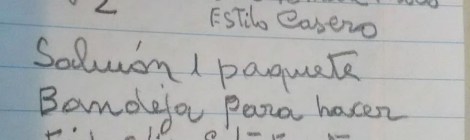 2
Estilo Casero
Salmón 1 paquete
Bandeja para hacer